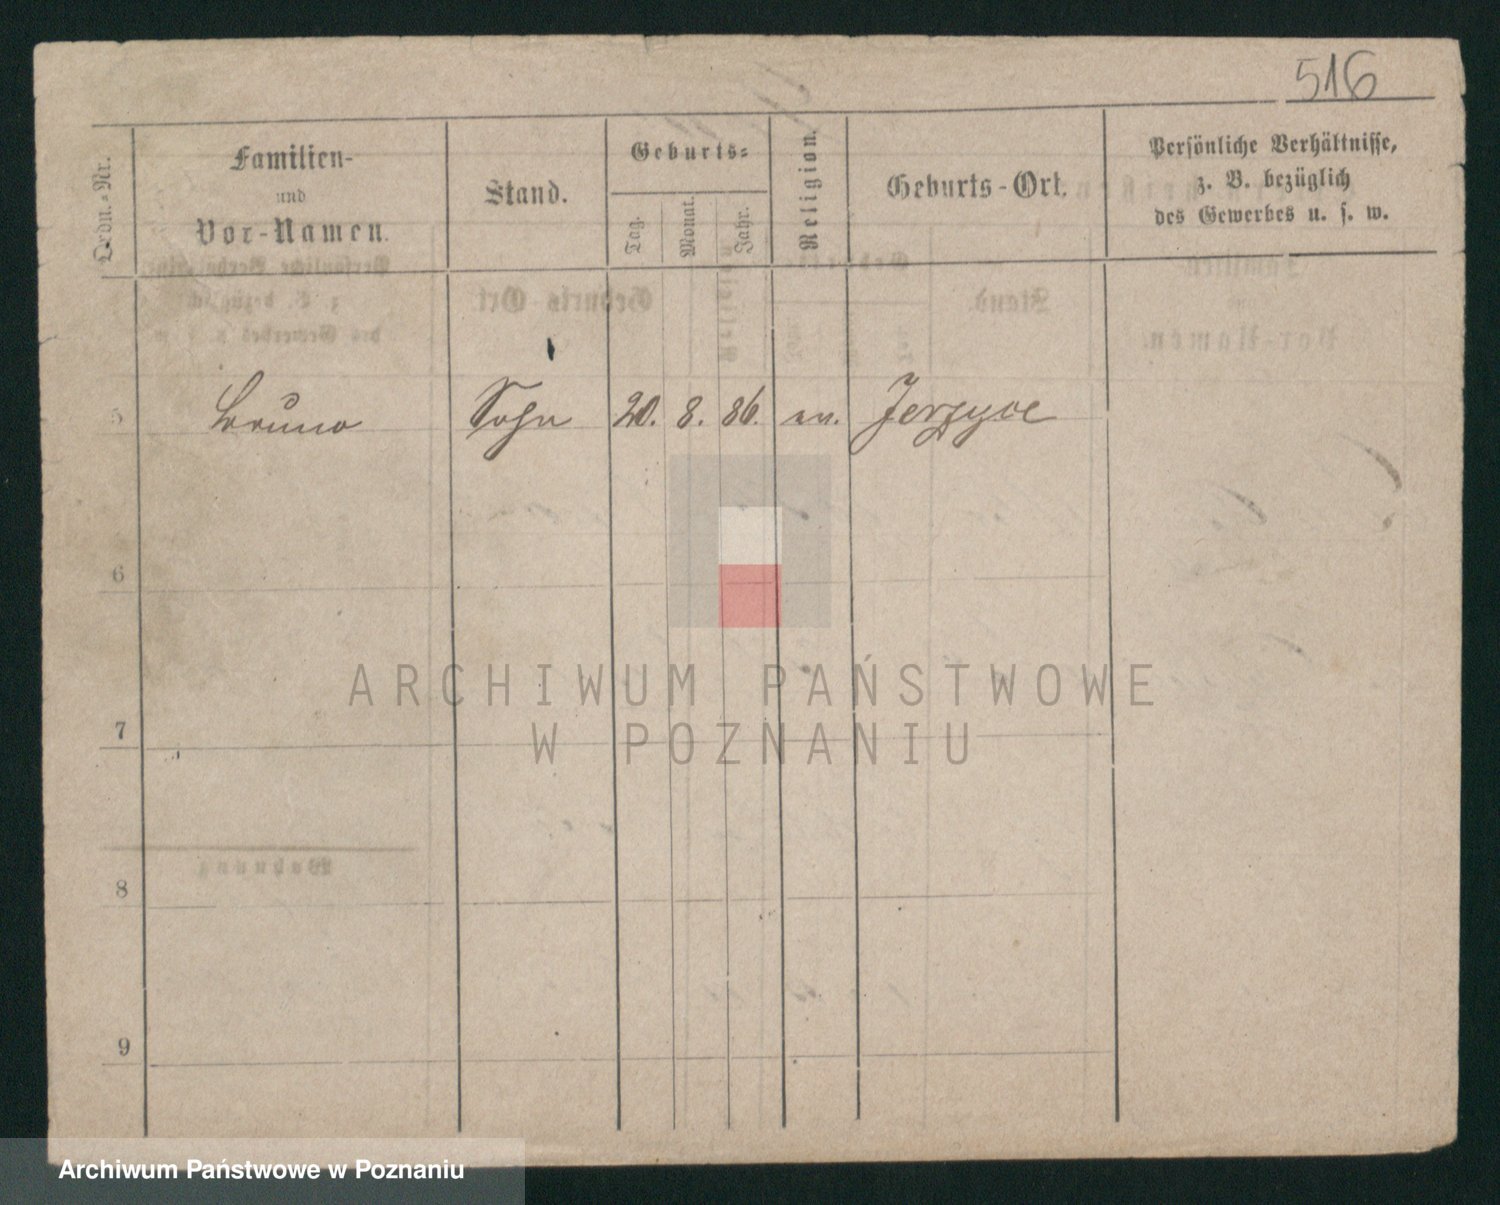 516
Ordn.-Nr.
Familien-
und
Vor-Namen.
Stand.
Geburts-
Tag.
Monat.
Jahr.
Religion.
Geburts-Ort.
Persönliche Verhältnisse,
z. B. bezüglich
des Gewerbes u. s. w.
5 Bruno Sohn 20. 8. 86. ev. Jerzyce
6
7
8
9
ARCHIWUM PAŃSTWOWE
W POZNANIU
Archiwum Państwowe w Poznaniu